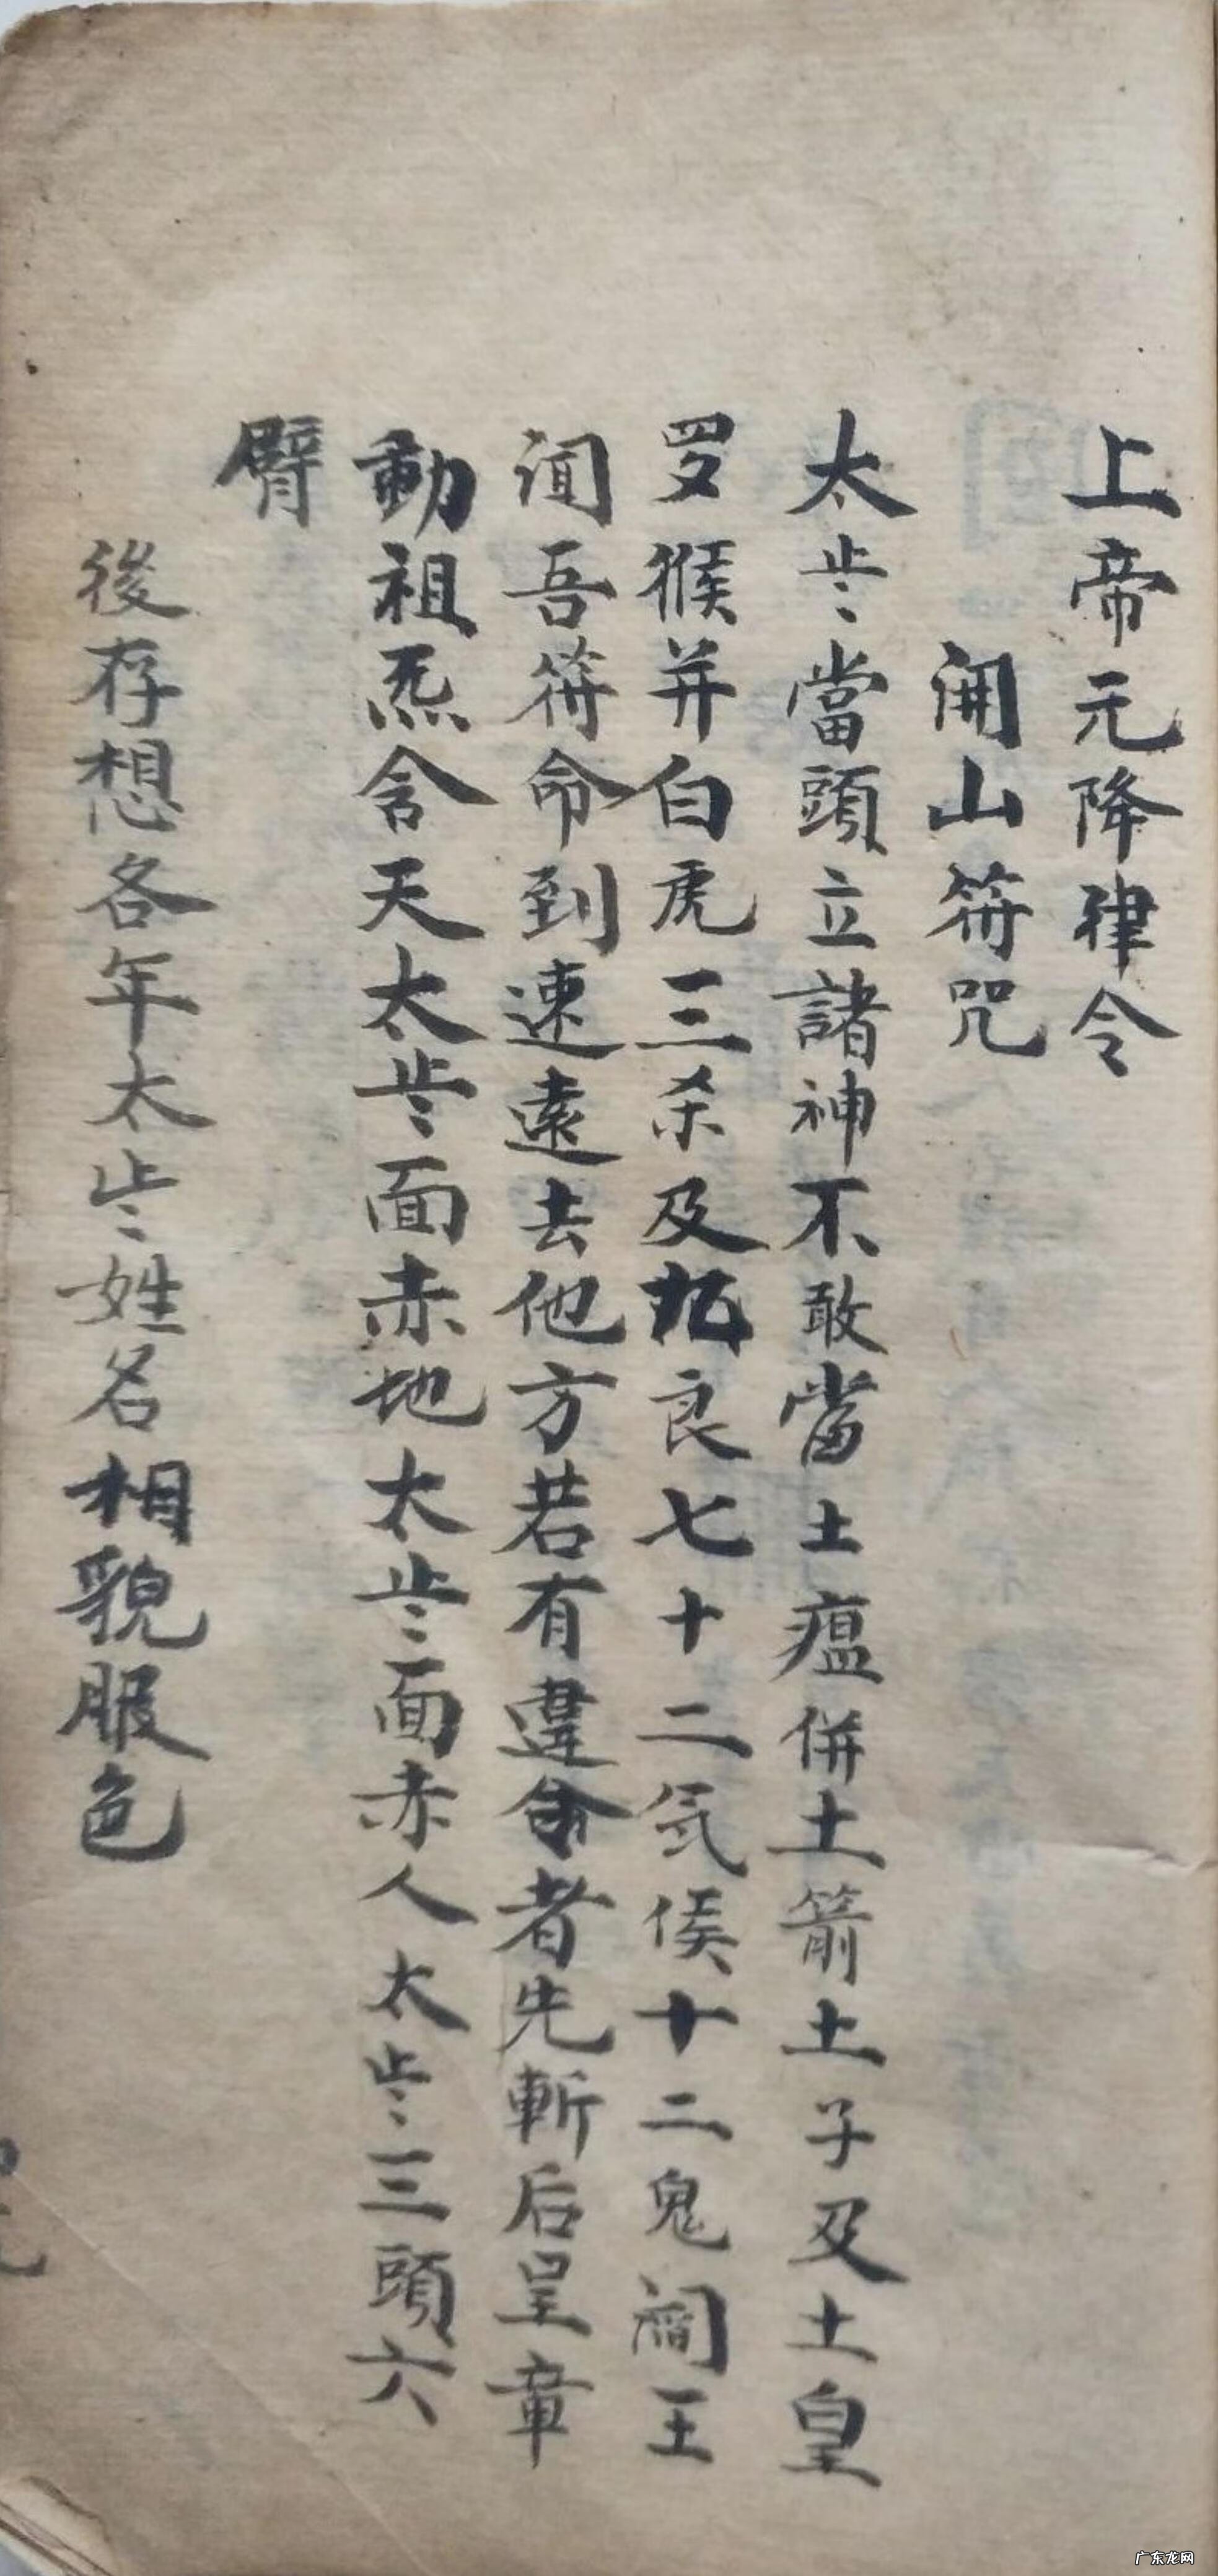 上帝元降律令
開山符咒
太歲當頭立諸神不敢當土瘟併土箭土子及土皇
罗猴并白虎三杀及九良七十二気侯十二鬼閻王
闻吾符命到速遠去他方若有違令者先斬后呈章
動祖炁含天太歲面赤地太歲面赤人太歲三頭六
臂
後存想各年太歲姓名相貌服色
广东龙网